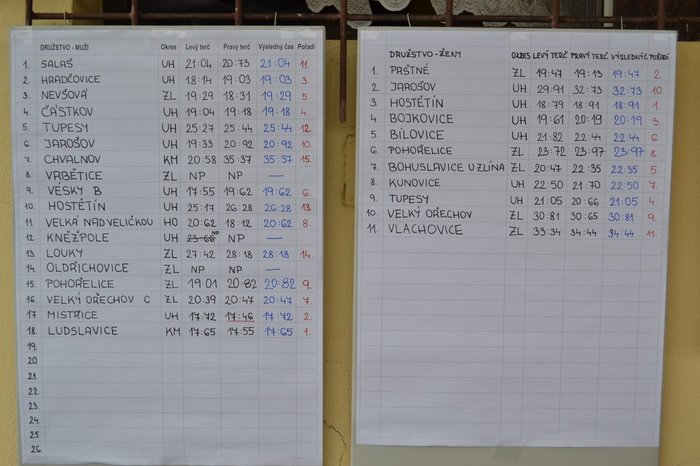 DRUŽSTVO - MUŽI Okres Levý terč Pravý terč Výsledný čas Pořadí
1. SALAŠ UH 21:04 20:73 21:04 11.
2. HRADČOVICE UH 18:14 19:03 19:03 3.
3. NEVŠOVÁ ZL 19:29 18:31 19:29 5.
4. ČÁSTKOV UH 19:04 19:18 19:18 4.
5. TUPESY UH 25:27 25:44 25:44 12.
6. JAROŠOV UH 19:33 20:92 20:92 10.
7. CHVALNOV KM 20:58 35:37 35:37 15.
8. VRBĚTICE ZL NP NP —
9. VÉSKY B UH 17:55 19:62 19:62 6.
10. HOSTĚTÍN UH 25:17 26:28 26:28 13.
11. VELKÁ NAD VELIČKOU HO 20:62 18:12 20:62 8.
12. KNĚŽPOLE UH NP NP —
13. LOUKY ZL 27:42 28:18 28:18 14.
14. OLDŘICHOVICE ZL NP NP —
15. POHOŘELICE ZL 19:01 20:82 20:82 9.
16. VELKÝ OŘECHOV C ZL 20:39 20:47 20:47 7.
17. MISTŘICE UH 17:72 17:46 17:72 2.
18. LUDSLAVICE KM 17:65 17:55 17:65 1.
19.
20.
21.
22.
23.
24.
25.
26.
DRUŽSTVO - ŽENY OKRES LEVÝ TERČ PRAVÝ TERČ VÝSLEDNÝ Č POŘADÍ
1. PRŠTNÉ ZL 19:47 19:13 19:47 2.
2. JAROŠOV UH 29:91 32:73 32:73 10.
3. HOSTĚTÍN UH 18:79 18:91 18:91 1.
4. BOJKOVICE UH 19:61 20:19 20:19 3.
5. BÍLOVICE UH 21:82 22:44 22:44 6.
6. POHOŘELICE ZL 23:72 23:97 23:97 8.
7. BOHUSLAVICE U ZLÍNA ZL 20:47 22:35 22:35 5.
8. KUNOVICE UH 22:50 21:70 22:50 7.
9. TUPESY UH 21:05 20:66 21:05 4.
10. VELKÝ OŘECHOV ZL 30:81 30:65 30:81 9.
11. VLACHOVICE ZL 33:34 34:44 34:44 11.